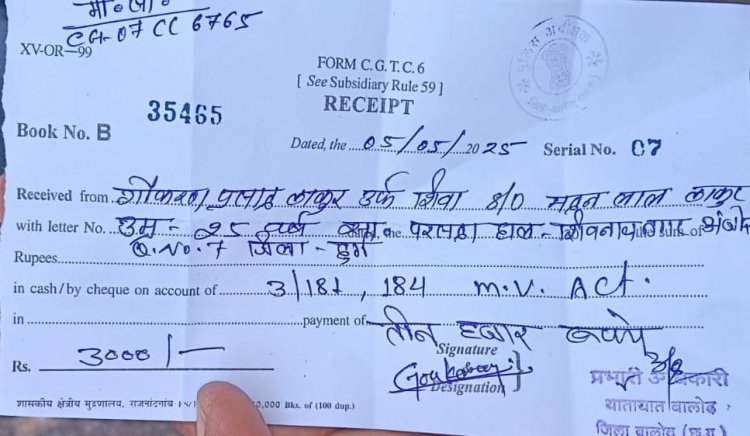 मो० सा०
CG-07 CC 6765
XV-OR-99
FORM C.G.T.C.6
[ See Subsidiary Rule 59 ]
RECEIPT
Book No. B 35465
Dated, the 05/05/2025 Serial No. 07
Received from प्रसाद ठाकुर उर्फ शिवा S/O मदन लाल ठाकुर
with letter No. उम्र - 25 वर्ष the परसदा हाल -
Q.No. 7 जिला - दुर्ग
Rupees
in cash/by cheque on account of 3/181, 184 M.V. ACT.
in payment of तीन हजार रूपये
Rs. 3000/-
Signature
Designation
प्रभारी अधिकारी
यातायात बालोद
जिला बालोद (छ.ग.)
शासकीय क्षेत्रीय मुद्रणालय, राजनांदगांव 0,000 Bks. of (100 dup.)